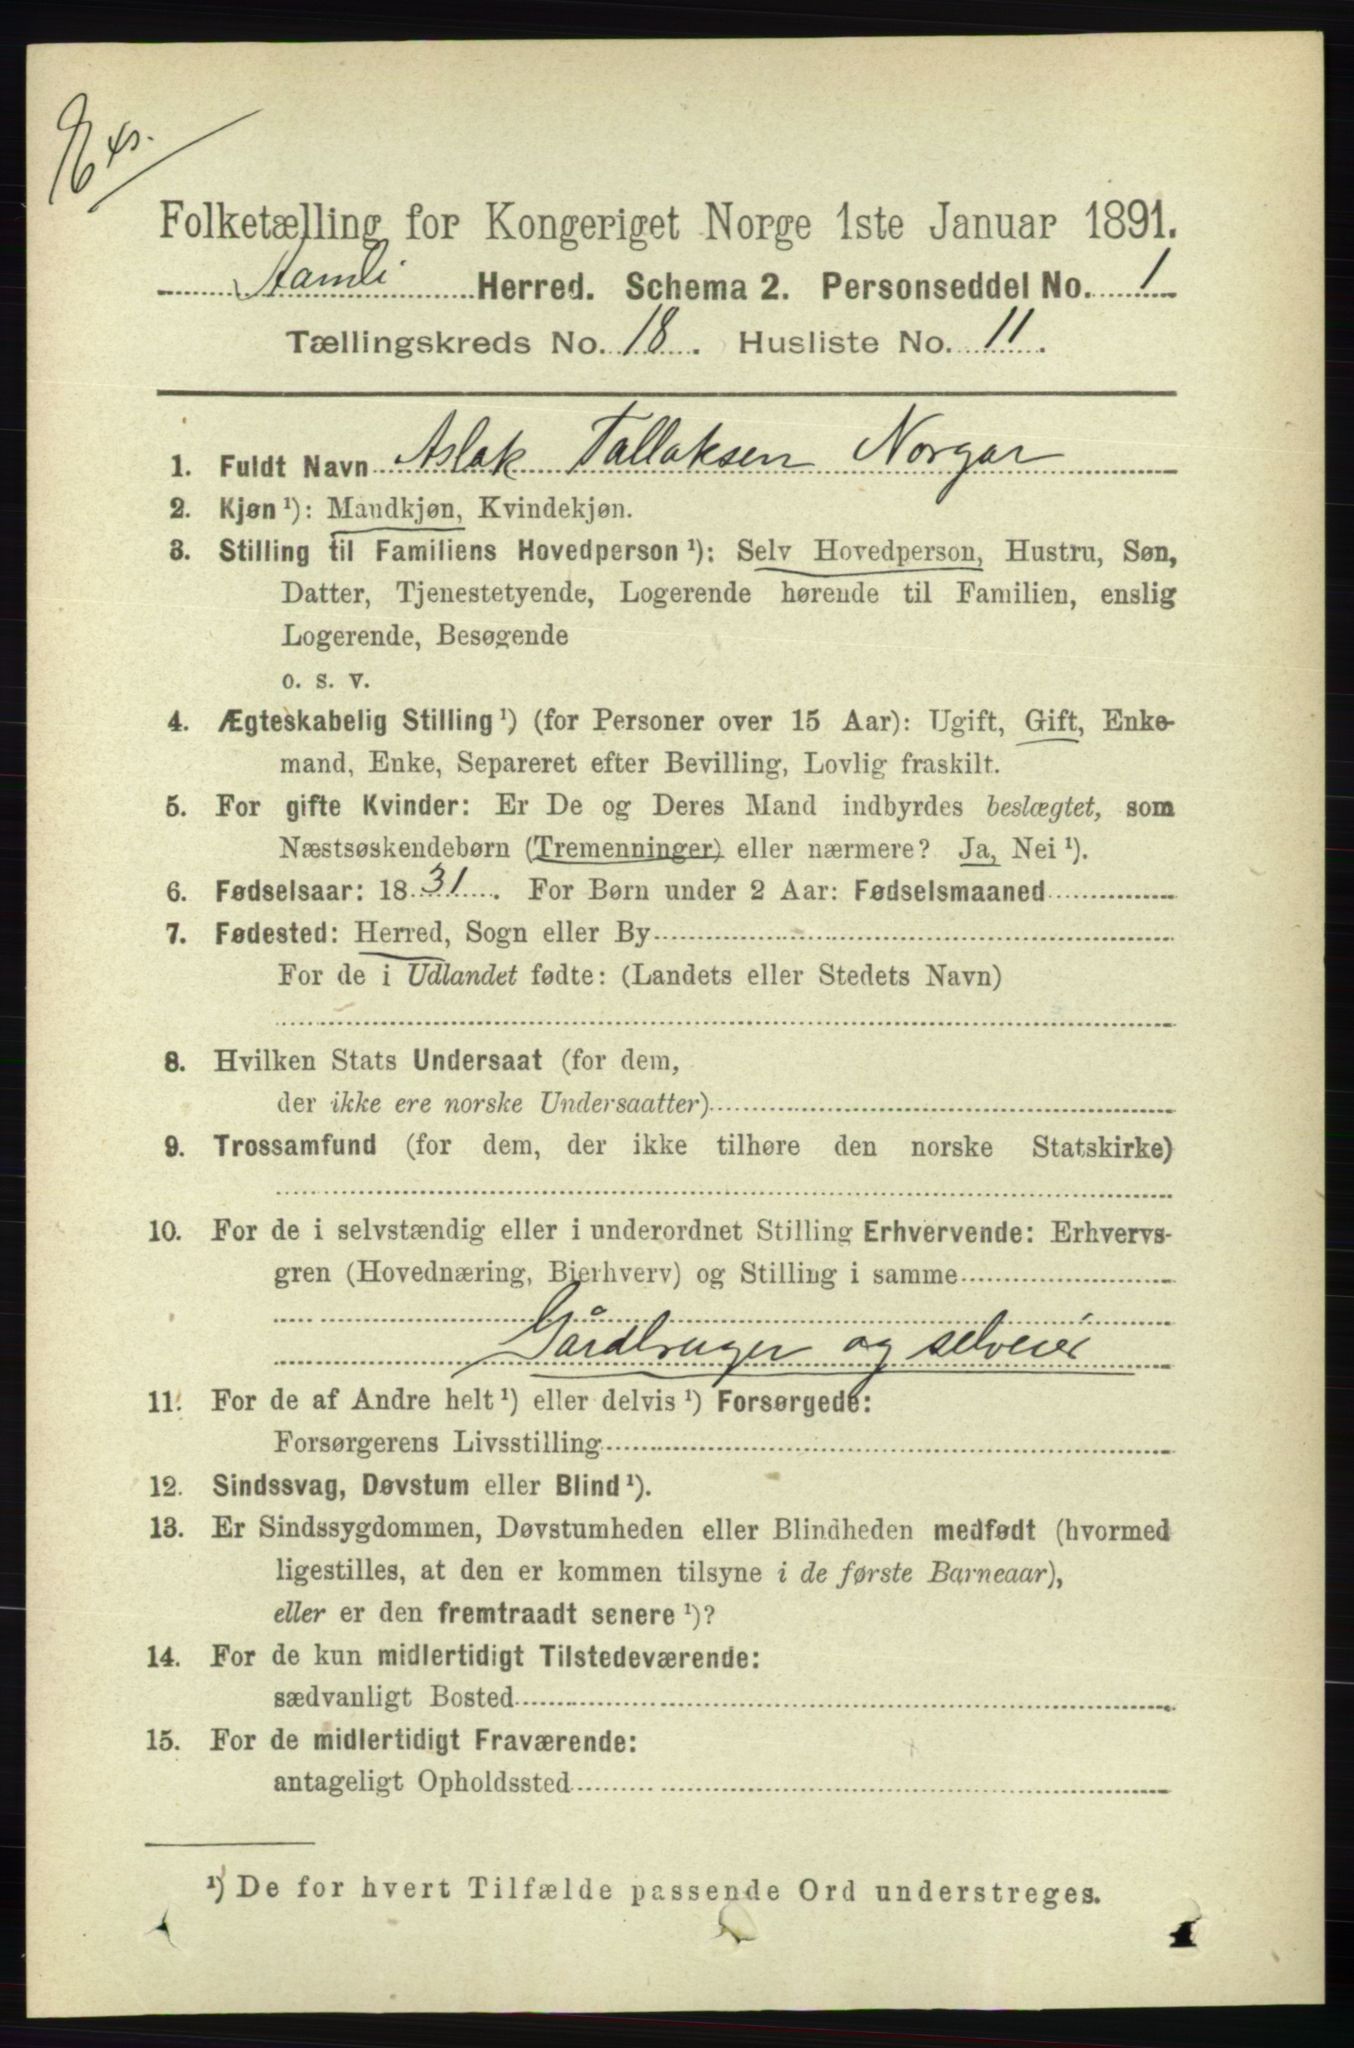 Folketælling for Kongeriget Norge 1ste Januar 1891.
Aamli Herred. Schema 2. Personseddel No. 1
Tællingskreds No. 18. Husliste No. 11.
1. Fuldt Navn Aslak Tallaksen Norgar
2. Kjøn ¹): Mandkjøn, Kvindekjøn.
3. Stilling til Familiens Hovedperson ¹): Selv Hovedperson, Hustru, Søn,
Datter, Tjenestetyende, Logerende hørende til Familien, enslig
Logerende, Besøgende
o. s. v.
4. Ægteskabelig Stilling ¹) (for Personer over 15 Aar): Ugift, Gift, Enke-
mand, Enke, Separeret efter Bevilling, Lovlig fraskilt.
5. For gifte Kvinder: Er De og Deres Mand indbyrdes beslægtet, som
Næstsøskendebørn (Tremenninger) eller nærmere? Ja, Nei ¹).
6. Fødselsaar: 1831. For Børn under 2 Aar: Fødselsmaaned
7. Fødested: Herred, Sogn eller By
For de i Udlandet fødte: (Landets eller Stedets Navn)
8. Hvilken Stats Undersaat (for dem,
der ikke ere norske Undersaatter)
9. Trossamfund (for dem, der ikke tilhøre den norske Statskirke)
10. For de i selvstændig eller i underordnet Stilling Erhvervende: Erhvervs-
gren (Hovednæring, Bierhverv) og Stilling i samme
Gårdbruger og selveier
11. For de af Andre helt ¹) eller delvis ¹) Forsørgede:
Forsørgerens Livsstilling
12. Sindssvag, Døvstum eller Blind ¹).
13. Er Sindssygdommen, Døvstumheden eller Blindheden medfødt (hvormed
ligestilles, at den er kommen tilsyne i de første Barneaar),
eller er den fremtraadt senere ¹)?
14. For de kun midlertidigt Tilstedeværende:
sædvanligt Bosted
15. For de midlertidigt Fraværende:
antageligt Opholdssted
¹) De for hvert Tilfælde passende Ord understreges.